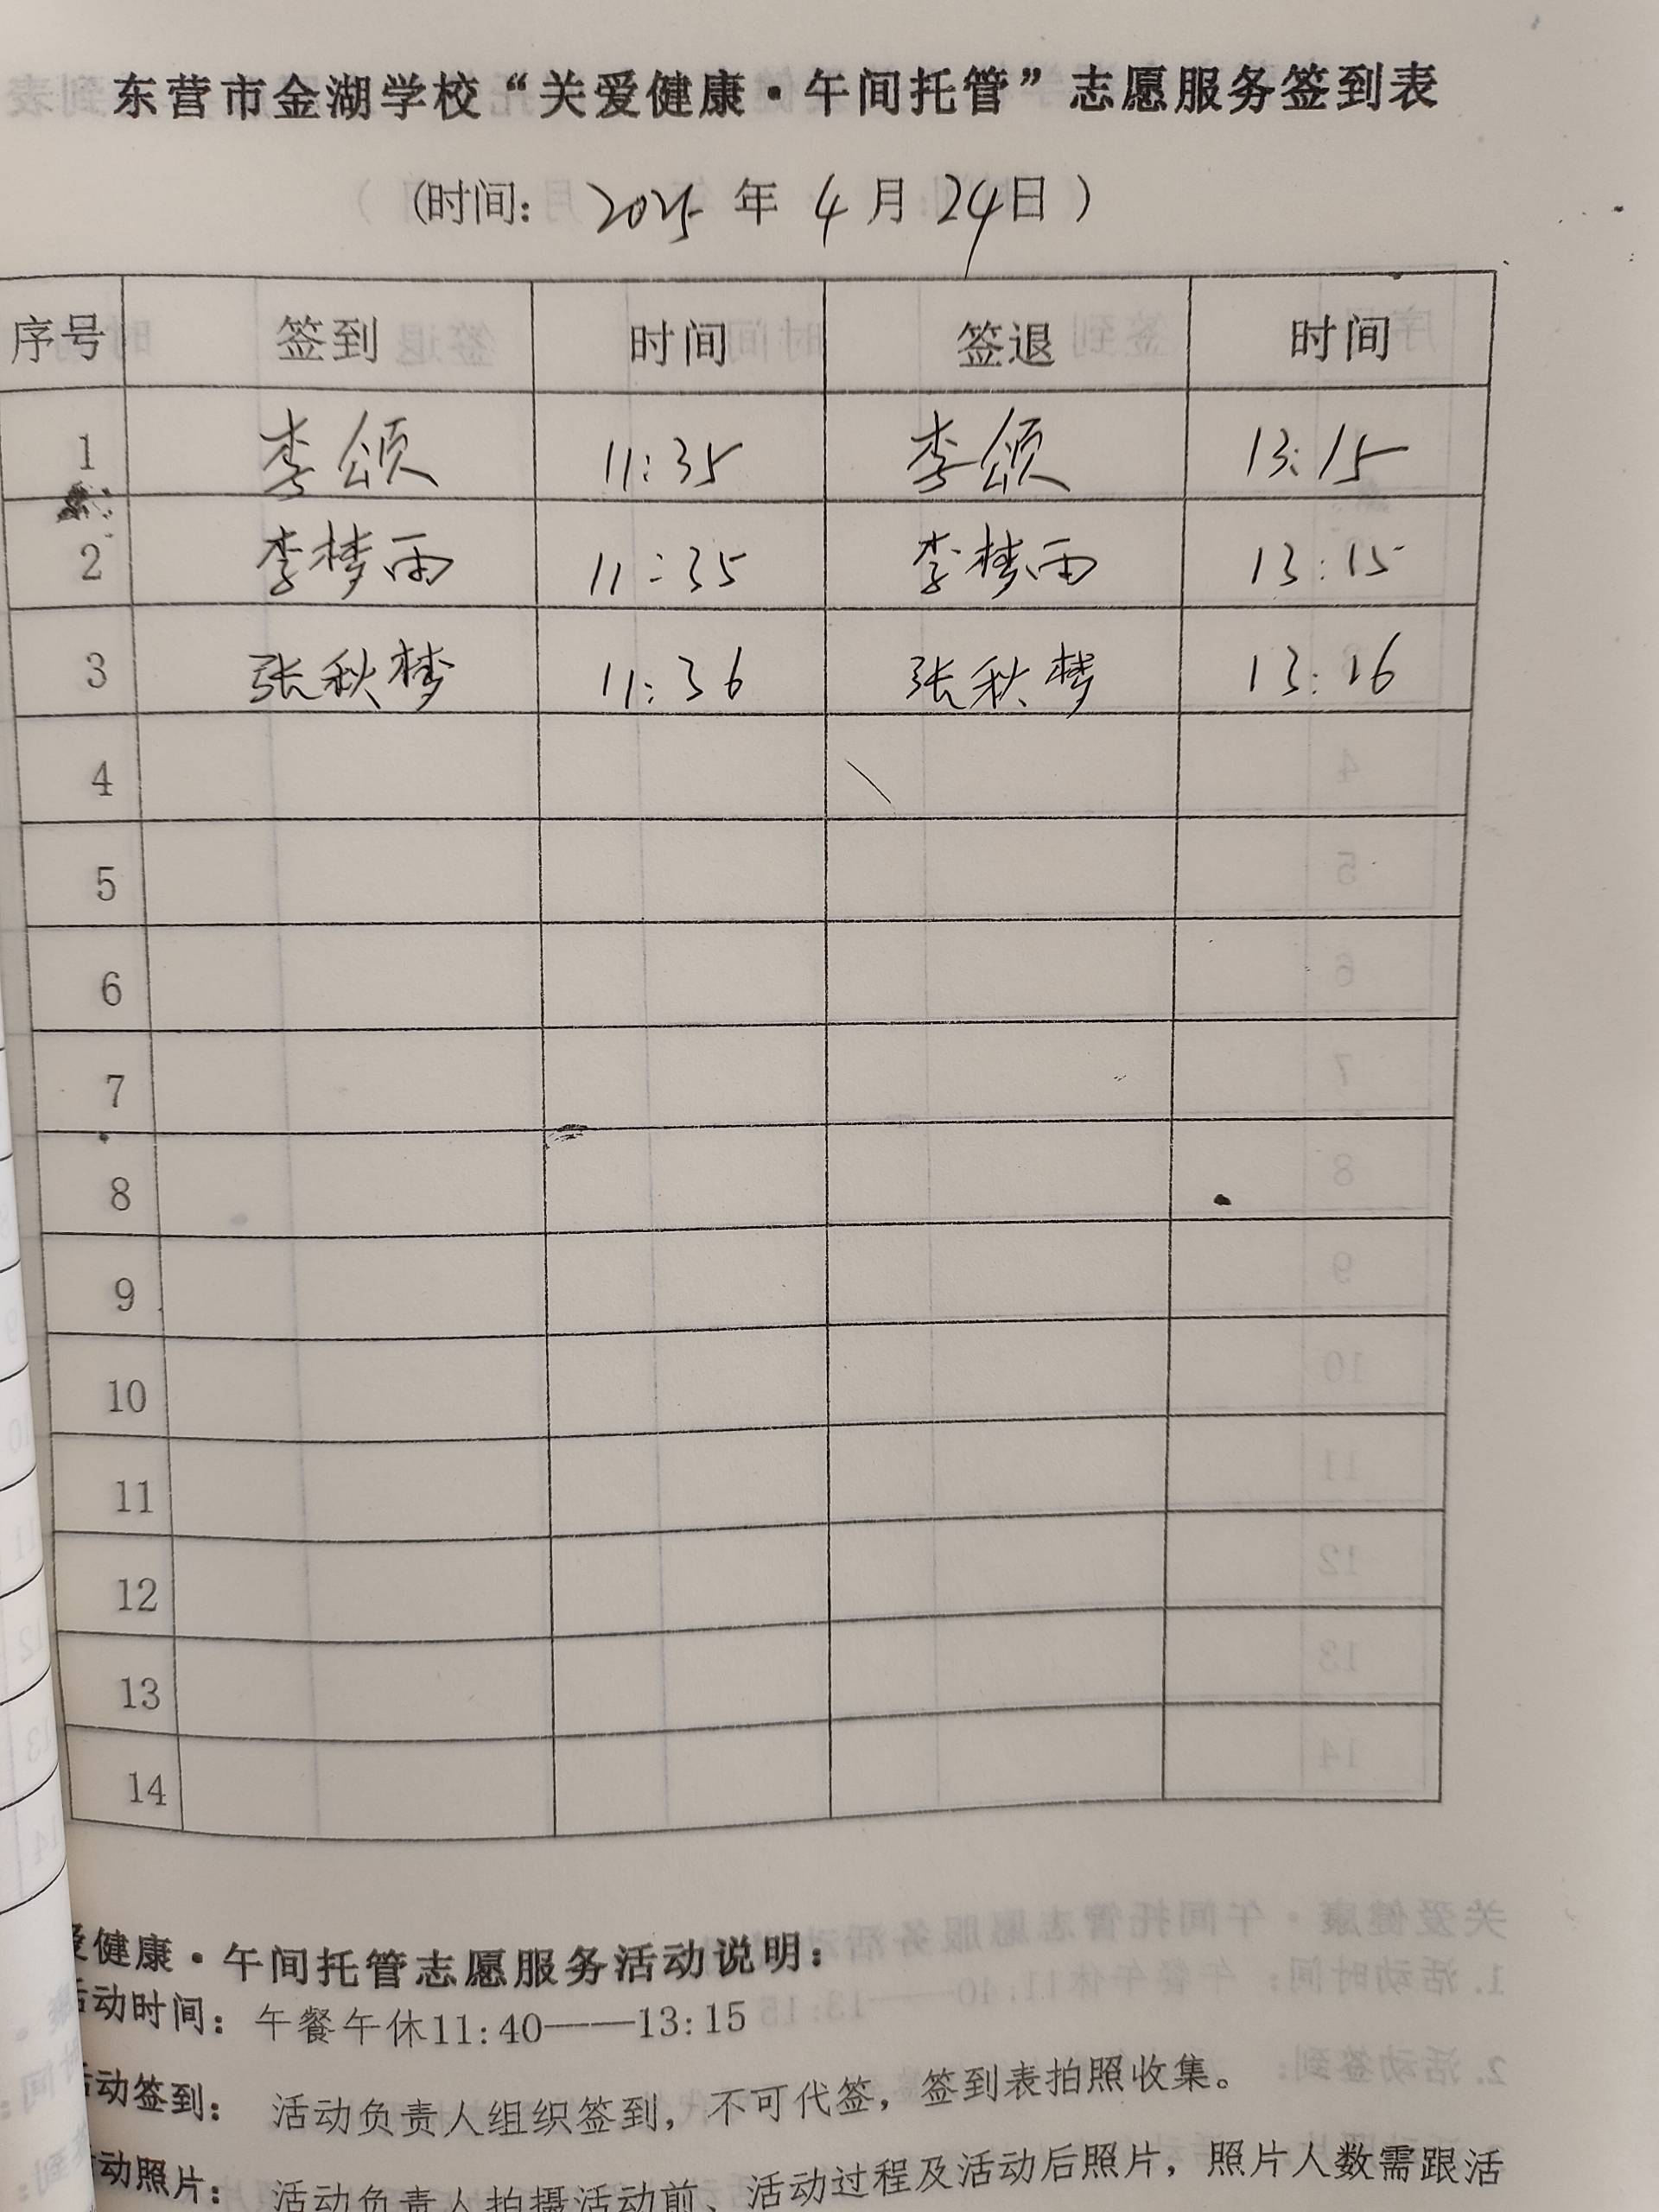 东营市金湖学校“关爱健康·午间托管”志愿服务签到表
(时间: 2025 年 4 月 24日 )
序号 签到 时间 签退 时间
1 李颂 11:35 李颂 13:15
2 李梦雨 11:35 李梦雨 13:15
3 张秋梦 11:36 张秋梦 13:16
4
5
6
7
8
9
10
11
12
13
14
爱健康·午间托管志愿服务活动说明:
活动时间: 午餐午休11:40——13:15
活动签到: 活动负责人组织签到,不可代签,签到表拍照收集。
活动照片: 活动负责人拍摄活动前、活动过程及活动后照片,照片人数需跟活